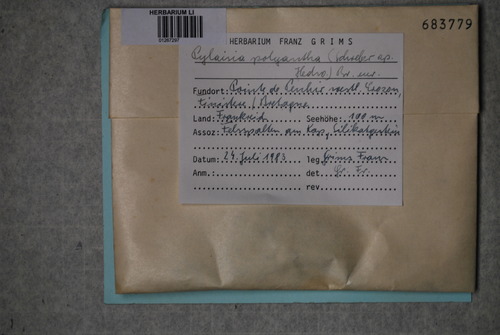 HERBARIUM LI
683779
HERBARIUM FRANZ GRIMS
Pylaisia polyantha (Schreber ap.
Hedw.) Br. eur.
Fundort: Pointe de Penhir westl. Crozon,
Finistère / Bretagne
Land: Frankreich Seehöhe: 100 m
Assoz: Felsspalten am Kap, Silikatgestein
Datum: 24. Juli 1983 leg. Grims Franz
Anm.: det. Gr. Fr.
rev.